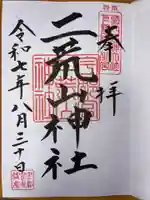 奉拝
二荒山神社
令和七年八月三十日